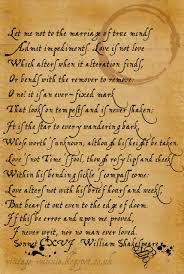 Let me not to the marriage of true minds
Admit impediments. Love is not love
Which alters when it alteration finds,
Or bends with the remover to remove:
O no! it is an ever-fixed mark
That looks on tempests and is never shaken;
It is the star to every wandering bark,
Whose worth's unknown, although his height be taken.
Love's not Time's fool, though rosy lips and cheeks
Within his bending sickle's compass come:
Love alters not with his brief hours and weeks,
But bears it out even to the edge of doom.
If this be error and upon me proved,
I never writ, nor no man ever loved.
Sonnet CXVI William Shakespeare